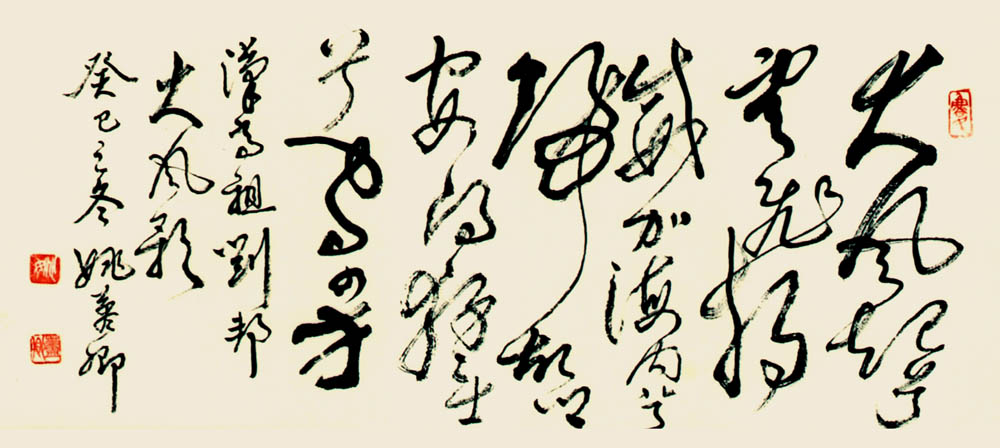 大风起兮
云飞扬
威加海内兮
归故鄉
安得猛士
兮守四方
漢高祖劉邦
大风歌
癸巳之冬姚景卿